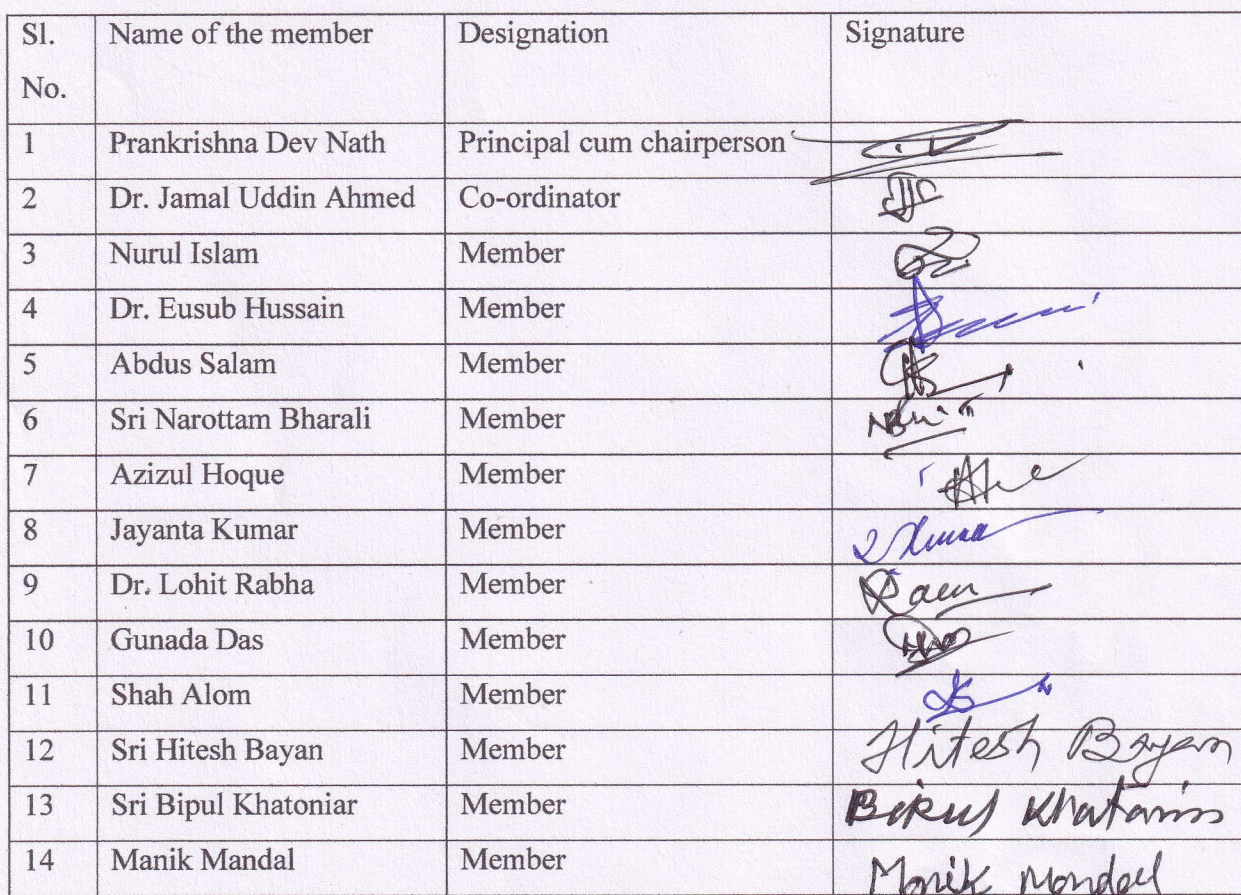 Sl. No. Name of the member Designation Signature
1 Prankrishna Dev Nath Principal cum chairperson
2 Dr. Jamal Uddin Ahmed Co-ordinator
3 Nurul Islam Member
4 Dr. Eusub Hussain Member
5 Abdus Salam Member
6 Sri Narottam Bharali Member
7 Azizul Hoque Member
8 Jayanta Kumar Member
9 Dr. Lohit Rabha Member
10 Gunada Das Member
11 Shah Alom Member
12 Sri Hitesh Bayan Member Hitesh Bayan
13 Sri Bipul Khatoniar Member
14 Manik Mandal Member Manik Mondal